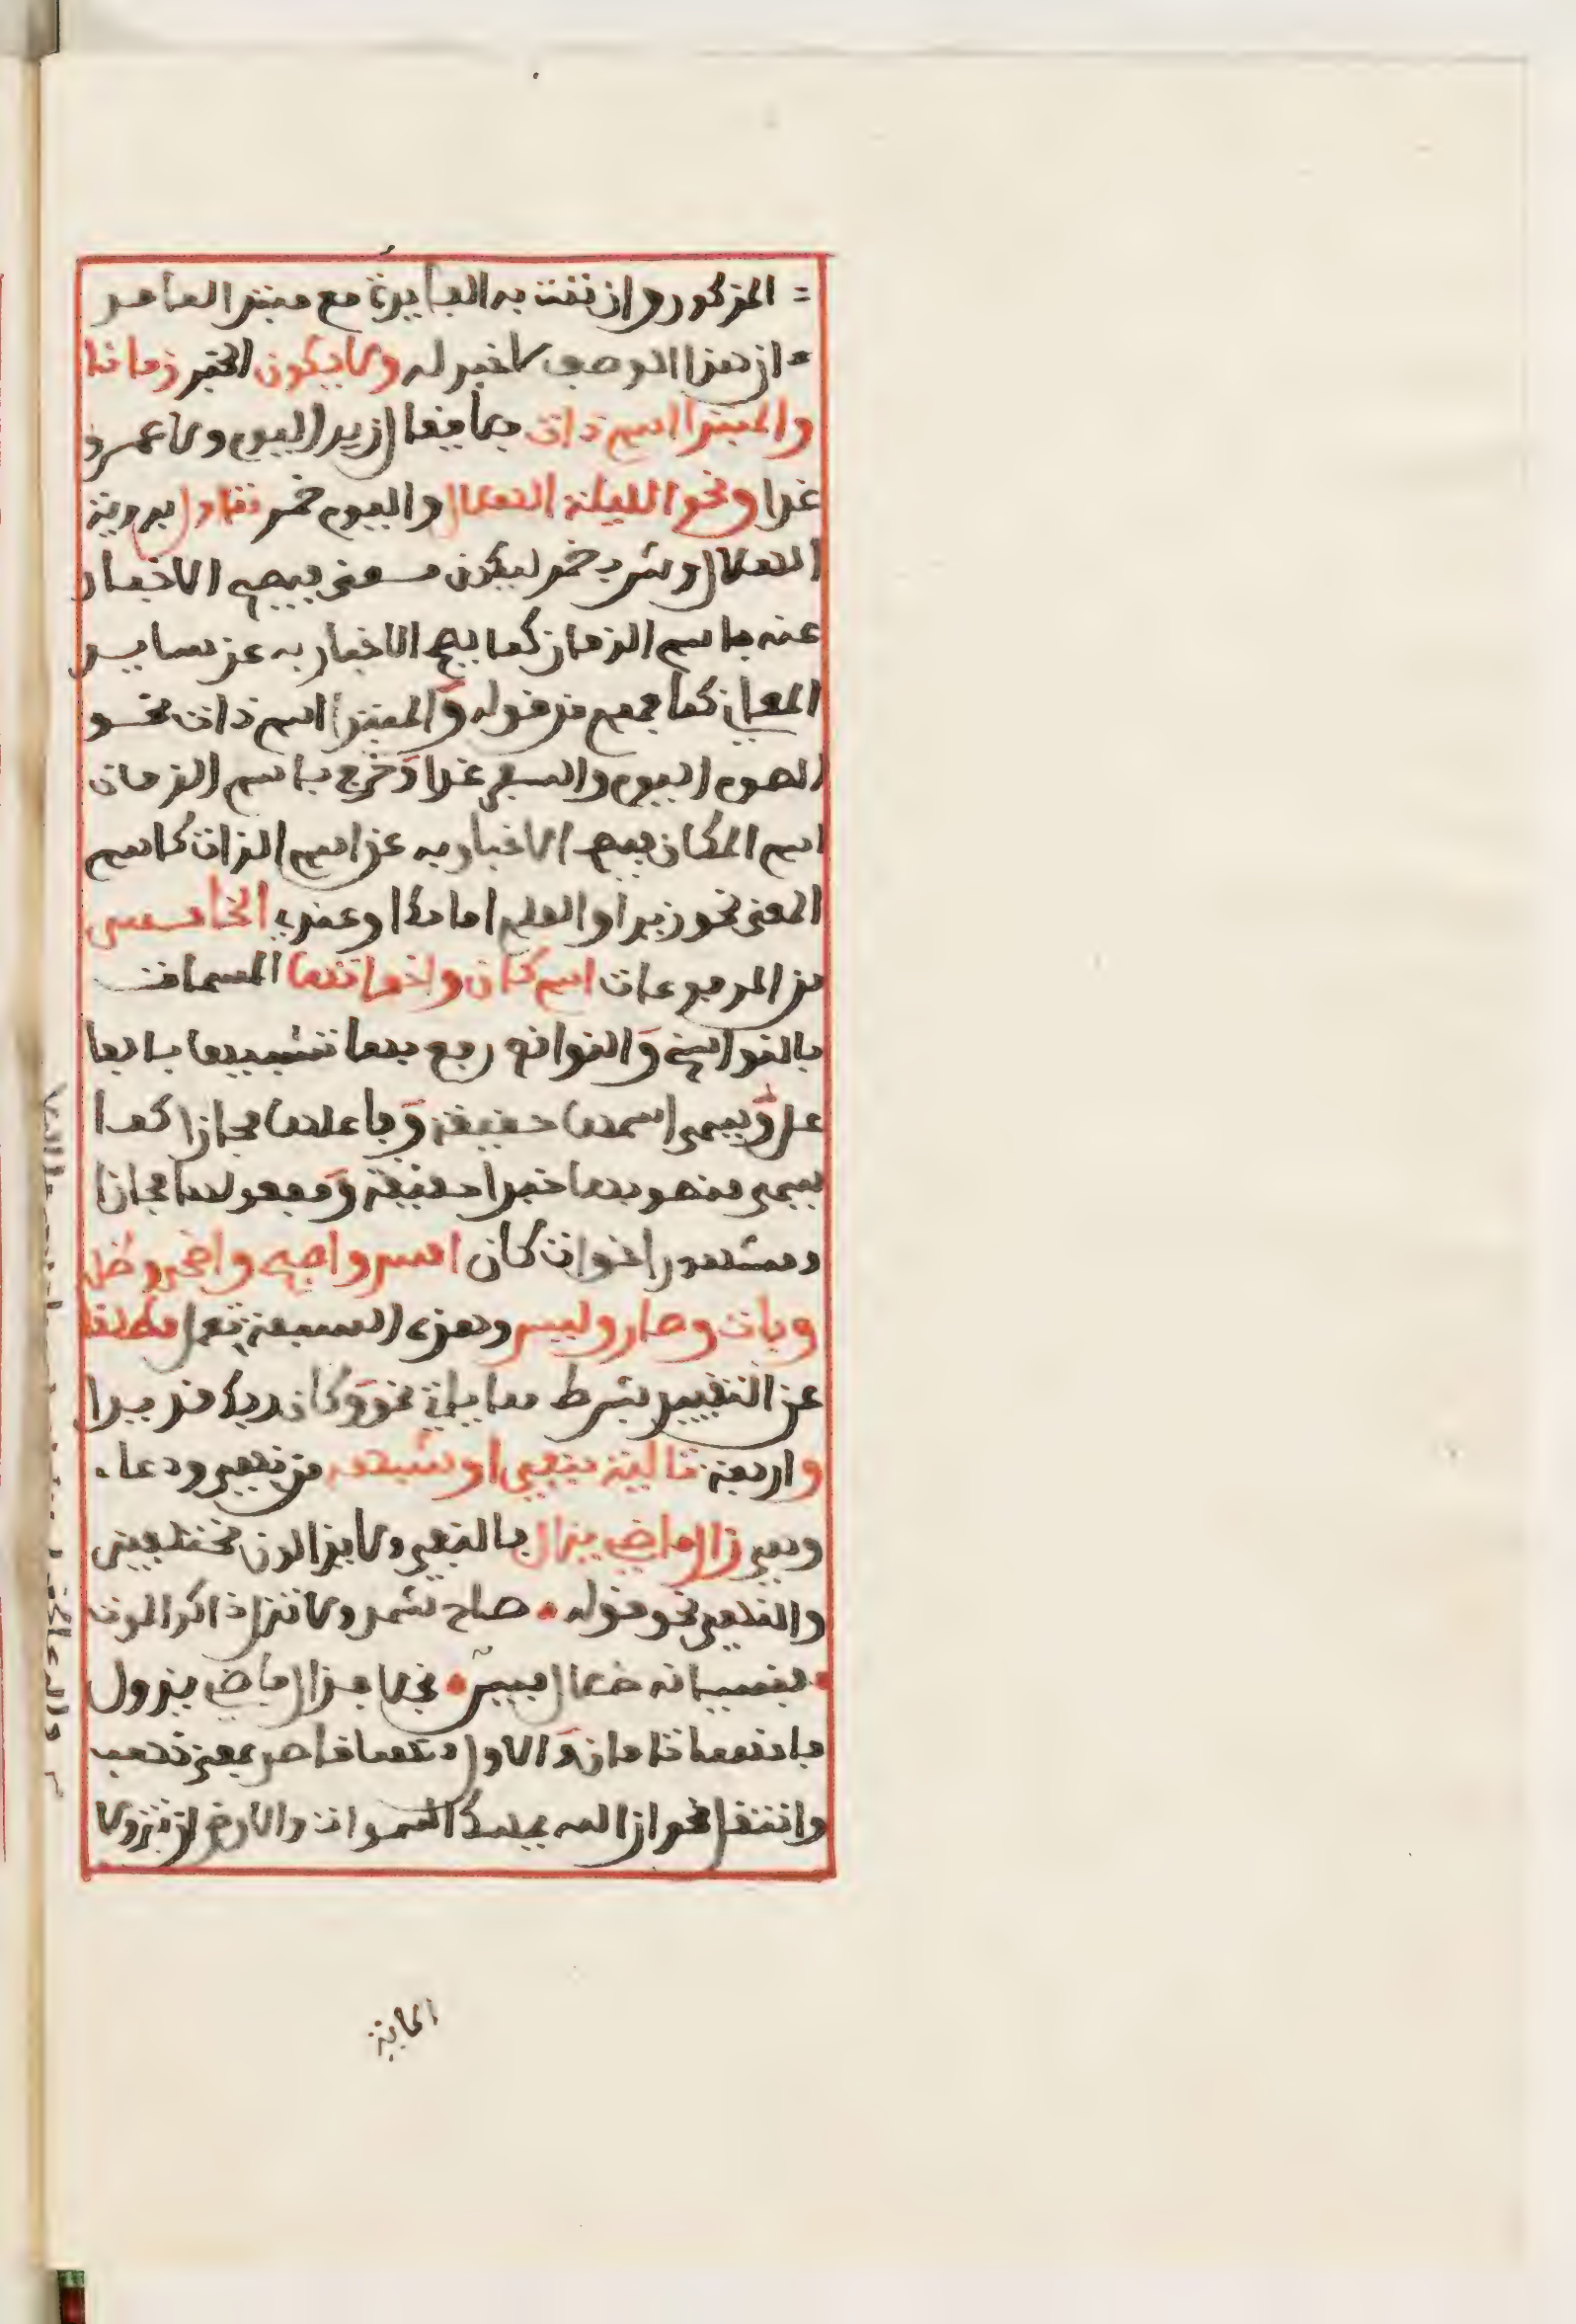 المذكور وان تمت به الفايدة مع مبتدا الفاعد
ان هذا الوصف لا خبر له ولا يكون الخبر زمانا
والمبتدا اسم ذات فلا يقال زيد اليوم ولا عمرو
غدا ونحو الليلة الهلال واليوم خمر متاول برؤية
الهلال وشرب خمر ليكون معنى فيصح الاخبار
عنه باسم الزمان كما يصح الاخبار به عن ساير
المعاني كما فهم من قوله والمبتدا اسم ذات نحو
الصوم اليوم والسفر غدا وخرج باسم الزمان
اسم المكان فيصح الاخبار به عن اسم الذات كاسم
المعنى نحو زيد او العلم امامك او عندي الخامس
من المرفوعات اسم كان واخواتها المسمات
بالنواسخ والنواقص رفع بها تشبيها بالفا
عل ويسمى اسمها حقيقة وفاعلها مجازا كما
يسمى منصوبها خبرا حقيقة ومفعولها مجازا
ومشهور اخوات كان امسى واصبح واضحى وظل
وبات وصار وليس وهذه السبعة تعمل مطلقا
عن التقييد بشرط مما ياتي نحو وكان ربك قديرا
واربعة تالية لنفي او شبهه من نهي ودعاء
وهي زال ماضي يزال بالنفي ولا يزالون مختلفين
والنهي نحو قوله صاح شمر ولا تزل ذاكر الموت
فنسيانه ضلال مبين بخلاف زال ماضي يزول
فانهما تامان والاول منهما قاصر بمعنى ذهب
وانتقل نحو ان الله يمسك السموات والارض ان تزولا